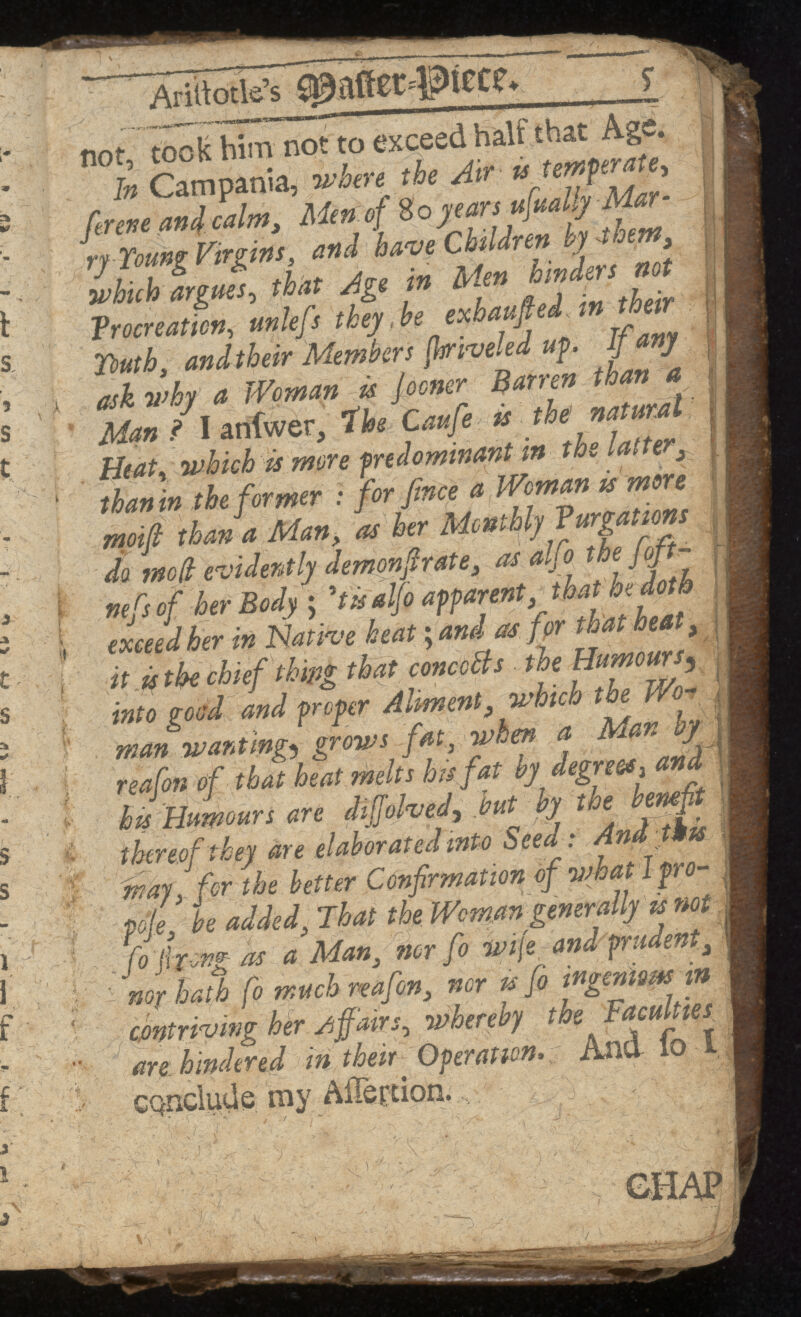 Ariſtotle's Maſter-Piece. 5
not, took him not to exceed half that Age.
In Campania, where the Air is temperate,
ſerene and calm, Men of 80 years uſually Mar-
ry Young Virgins, and have Children by them,
which argues, that Age in Men hinders not
Procreation, unleſs they be exhauſted in their
Youth, and their Members ſhriveled up. If any
ask why a Woman is ſooner Barren than a
Man? I anſwer, The Cauſe is the natural
Heat, which is more predominant in the latter,
than in the former : for ſince a Woman is more
moiſt than a Man, as her Monthly Purgations
do moſt evidently demonſtrate, as alſo the ſoft-
neſs of her Body ; 'tis alſo apparent, that he doth
exceed her in Native heat ; and as for that heat,
it is the chief thing that concocts the Humours,
into good and proper Aliment, which the Wo-
man wanting, grows fat, when a Man by
reaſon of that heat melts his fat by degrees, and
his Humours are diſſolved, but by the benefit
thereof they are elaborated into Seed : And this
may, for the better Confirmation of what I pro-
poſe, be added, That the Woman generally is not
ſo ſtrong as a Man, nor ſo wiſe and prudent,
nor hath ſo much reaſon, nor is ſo ingenious in
contriving her Affairs, whereby the Faculties
are hindered in their Operation. And ſo I
conclude my Aſſertion.
CHAP